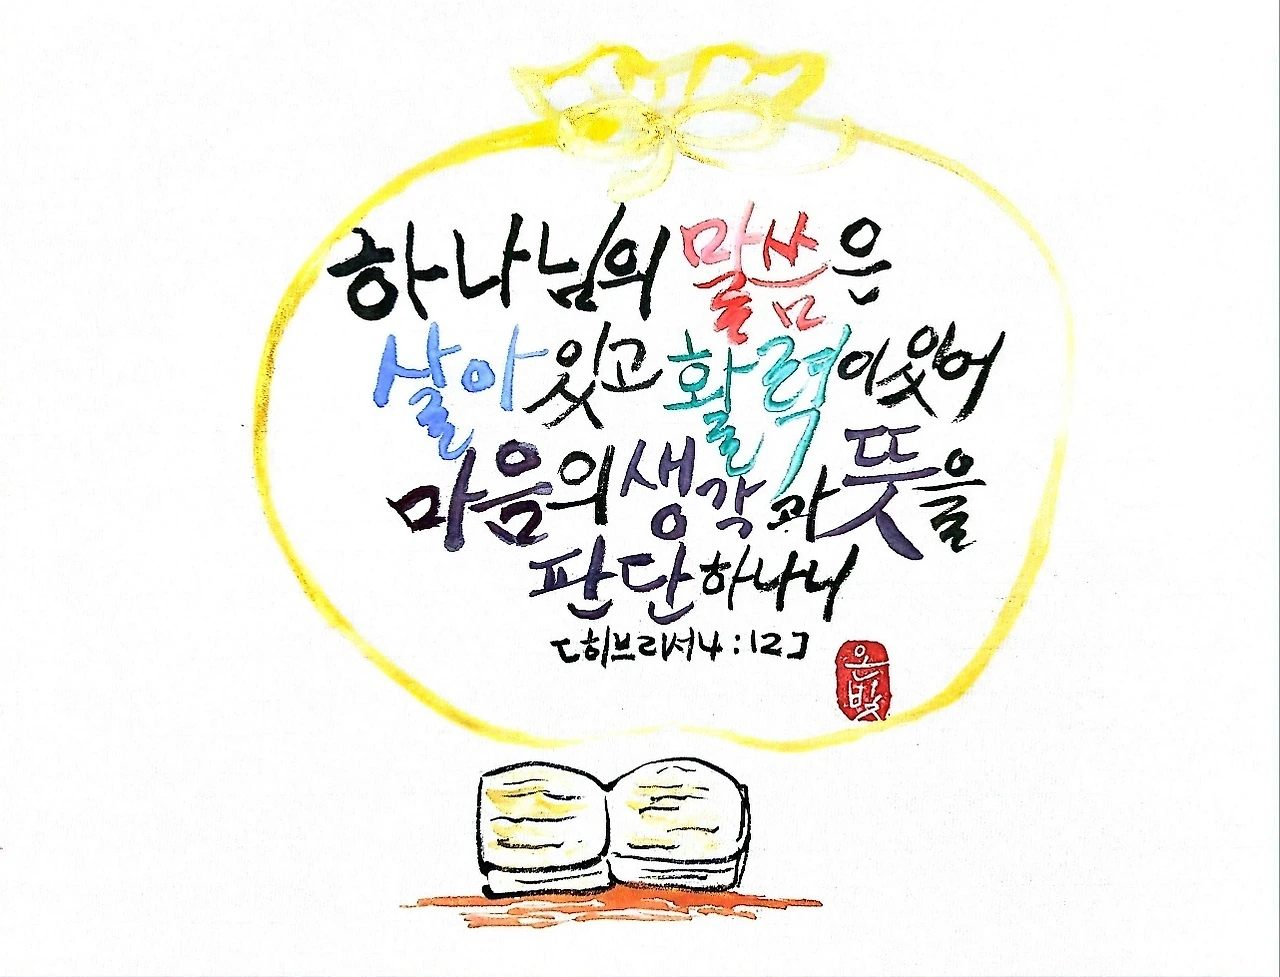 하나님의 말씀은
살아 있고 활력이 있어
마음의 생각과 뜻을
판단하나니
[히브리서 4:12]
은빛